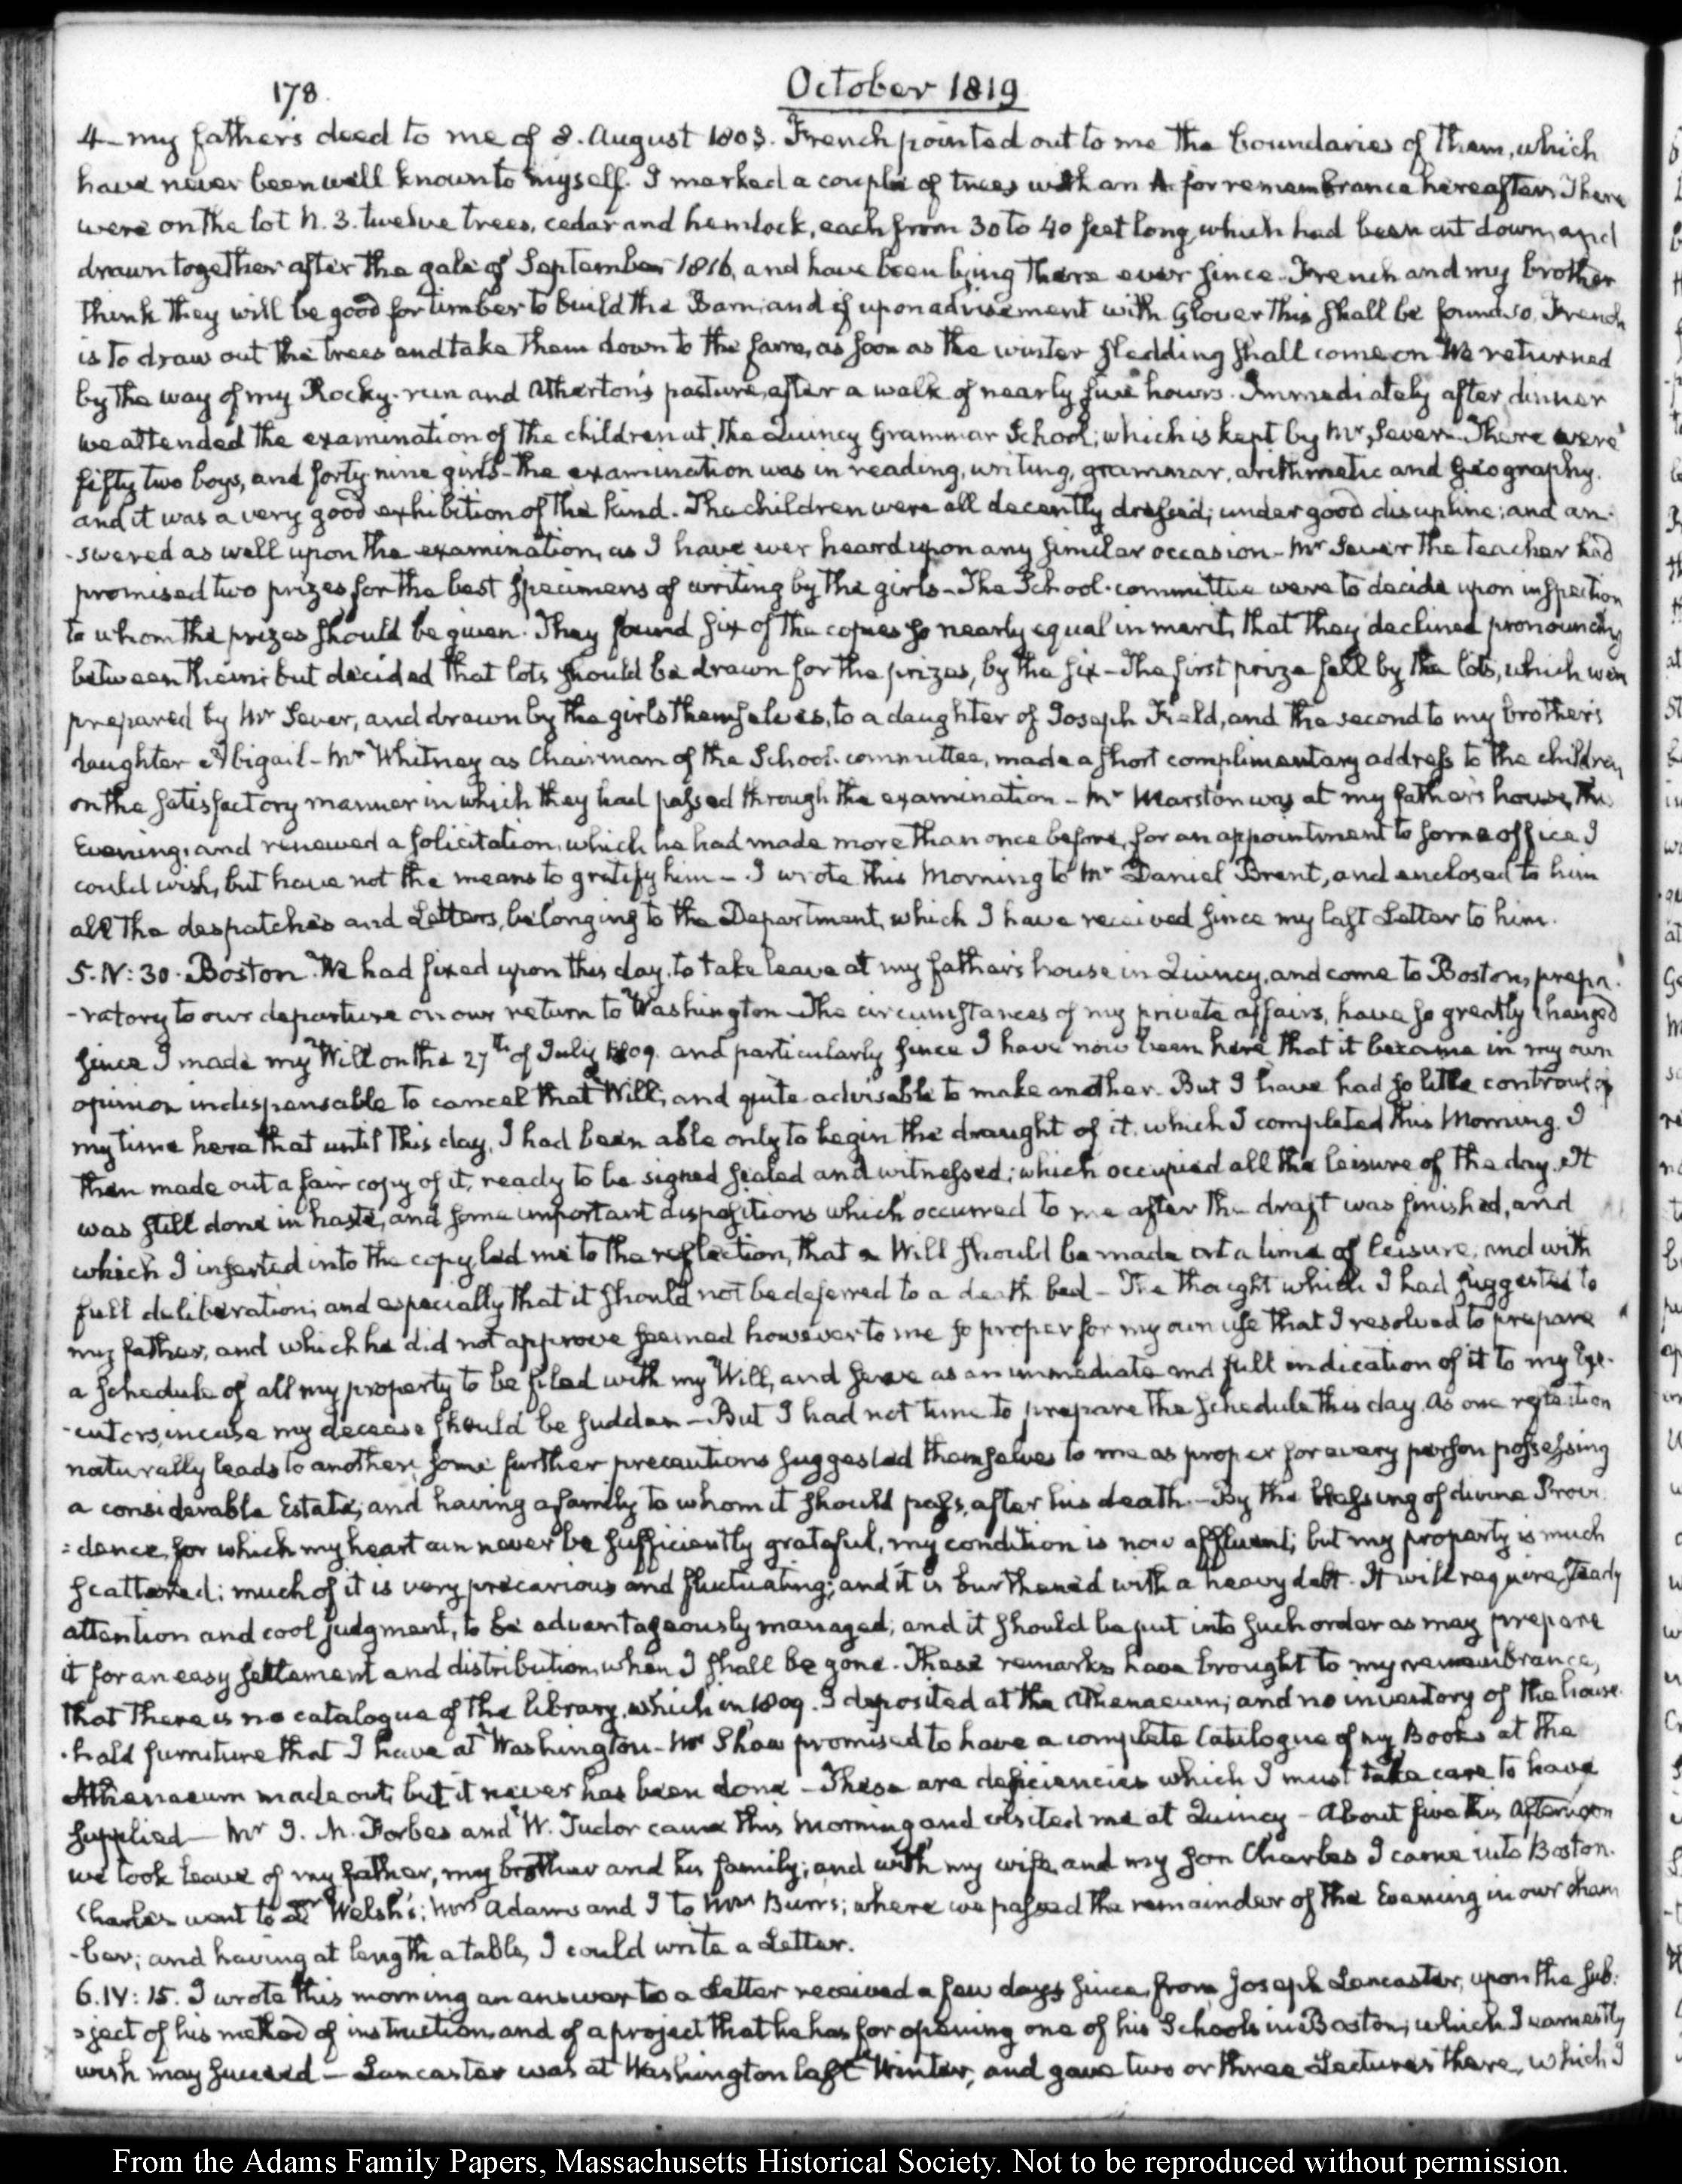 178.
October 1819
4– my father's deed to me of 8. August 1803. French pointed out to me the boundaries of them, which
have never been well known to myself. I marked a couple of trees with an A. for remembrance hereafter. There
were on the lot N. 3. twelve trees, cedar and hemlock, each from 30 to 40 feet long, which had been cut down, and
drawn together after the gale of September 1816, and have been lying there ever since. French and my brother
think they will be good for timber to build the Barn; and if upon advisement with Glover this shall be found so, French
is to draw out the trees and take them down to the farm, as soon as the winter sledding shall come on. We returned
by the way of my Rocky-run and Atherton's pasture, after a walk of nearly five hours. Immediately after dinner
we attended the examination of the children at the Quincy Grammar School; which is kept by Mr. Sever. There were
fifty two boys, and forty-nine girls– the examination was in reading, writing, grammar, arithmetic and Geography.
and it was a very good exhibition of the kind. The children were all decently dressed; under good discipline; and an-
-swered as well upon the examination, as I have ever heard upon any similar occasion– Mr Sever the teacher had
promised two prizes for the best specimens of writing by the girls– The School-committee were to decide upon inspection
to whom the prizes should be given. They found six of the copies so nearly equal in merit, that they declined pronouncing
between them; but decided that lots should be drawn for the prizes, by the six– The first prize fell by the lots, which were
prepared by Mr Sever, and drawn by the girls themselves, to a daughter of Joseph Field, and the second to my brother's
daughter Abigail– Mr Whitney as Chairman of the School-committee, made a short complimentary address to the children
on the satisfactory manner in which they had passed through the examination– Mr Marston was at my father's house, this
Evening, and renewed a solicitation, which he had made more than once before, for an appointment to some office I
could wish, but have not the means to gratify him– I wrote this Morning to Mr Daniel Brent, and enclosed to him
all the despatches and Letters, belonging to the Department, which I have received since my last Letter to him.
5. IV: 30. Boston. We had fixed upon this day, to take leave at my father's house in Quincy, and come to Boston, prepa-
-ratory to our departure on our return to Washington– The circumstances of my private affairs, have so greatly changed
since I made my Will on the 27th of July 1809. and particularly since I have now been here that it became in my own
opinion indispensable to cancel that Will; and quite advisable to make another. But I have had so little controul of
my time here that until this day, I had been able only to begin the draught of it, which I completed this Morning. I
then made out a fair copy of it, ready to be signed sealed and witnessed; which occupied all the leisure of the day. It
was still done in haste, and some important dispositions which occurred to me after the draft was finished, and
which I inserted into the copy, led me to the reflection, that a Will should be made at a time of leisure, and with
full deliberation; and especially that it should not be deferred to a death bed– The thought which I had suggested to
my father, and which he did not approve seemed however to me so proper for my own use that I resolved to prepare
a schedule of all my property to be filed with my Will, and serve as an immediate and full indication of it to my Exe-
-cutors, in case my decease should be sudden– But I had not time to prepare the schedule this day. As one reflection
naturally leads to another, some further precautions suggested themselves to me as proper for every person possessing
a considerable Estate, and having a family to whom it should pass, after his death.– By the blessing of divine Provi-
-dence, for which my heart can never be sufficiently grateful, my condition is now affluent; but my property is much
scattered; much of it is very precarious and fluctuating; and it is burthened with a heavy debt. It will require steady
attention and cool judgment, to be advantageously managed; and it should be put into such order as may prepare
it for an easy settlement and distribution, when I shall be gone. These remarks have brought to my remembrance,
that there is no catalogue of the library, which in 1809. I deposited at the Athenaeum; and no inventory of the house-
-hold furniture that I have at Washington– Mr Shaw promised to have a complete Catalogue of my Books at the
Athenaeum made out; but it never has been done– These are deficiencies which I must take care to have
supplied– Mr J. M. Forbes and W. Tudor came this Morning and visited me at Quincy– About five this Afternoon
we took leave of my father, my brother and his family; and with my wife, and my son Charles I came into Boston.
Charles went to Dr Welsh's; Mrs Adams and I to Mrs Burrs; where we passed the remainder of the Evening in our cham
-ber; and having at length a table, I could write a Letter.
6. IV: 15. I wrote this morning an answer to a Letter received a few days since, from Joseph Lancaster, upon the sub-
-ject of his method of instruction, and of a project that he has for opening one of his Schools in Boston; which I earnestly
wish may succeed– Lancaster was at Washington last Winter, and gave two or three Lectures there, which I
From the Adams Family Papers, Massachusetts Historical Society. Not to be reproduced without permission.